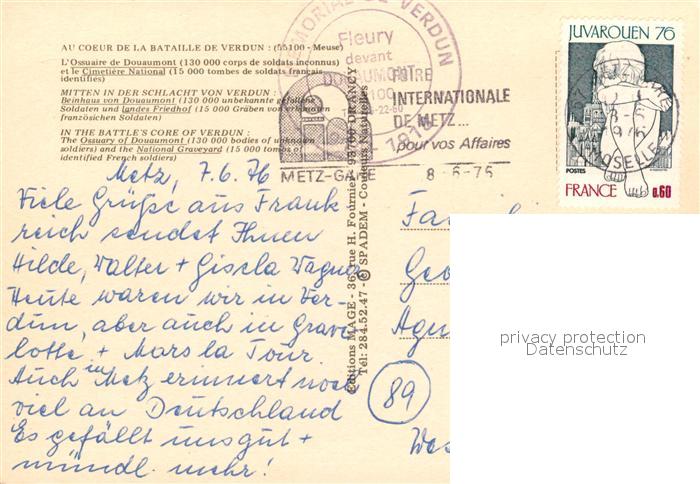 AU COEUR DE LA BATAILLE DE VERDUN : (55100 - Meuse)
L'Ossuaire de Douaumont (130 000 corps de soldats inconnus)
et le Cimetière National (15 000 tombes de soldats français
identifiés)
MITTEN IN DER SCHLACHT VON VERDUN :
Beinhaus von Douaumont (130 000 unbekannte gefallene
Soldaten und landes Friedhof (15 000 Gräben von erkannten
französischen Soldaten)
IN THE BATTLE'S CORE OF VERDUN :
The Ossuary of Douaumont (130 000 bodies of unknown
soldiers) and the National Graveyard (15 000 tombs of
identified French soldiers)
MEMORIAL DE VERDUN
Fleury
devant
DOUAUMONT
1916
FOIRE
INTERNATIONALE
DE METZ...
pour vos Affaires
METZ-GARE 8-6-76
JUVAROUEN 76
MOSELLE
POSTES
FRANCE 0.60
Editions MAGE - 36, rue H. Fournier - 93700 DRANCY
Tél: 284.52.47 - © SPADEM - Couleurs Naturelles
Metz, 7.6.76
Viele Grüße aus Frank
reich sendet Ihnen
Hilde, Walter + Gisela Wagner
Heute waren wir in Ver-
dun, aber auch in Grave
lotte + Mars la Tour.
Auch in Metz erinnert noch
viel an Deutschland
Es gefällt uns gut +
mündl. mehr!
Fa
Geo
Agn
89
privacy protection
Datenschutz